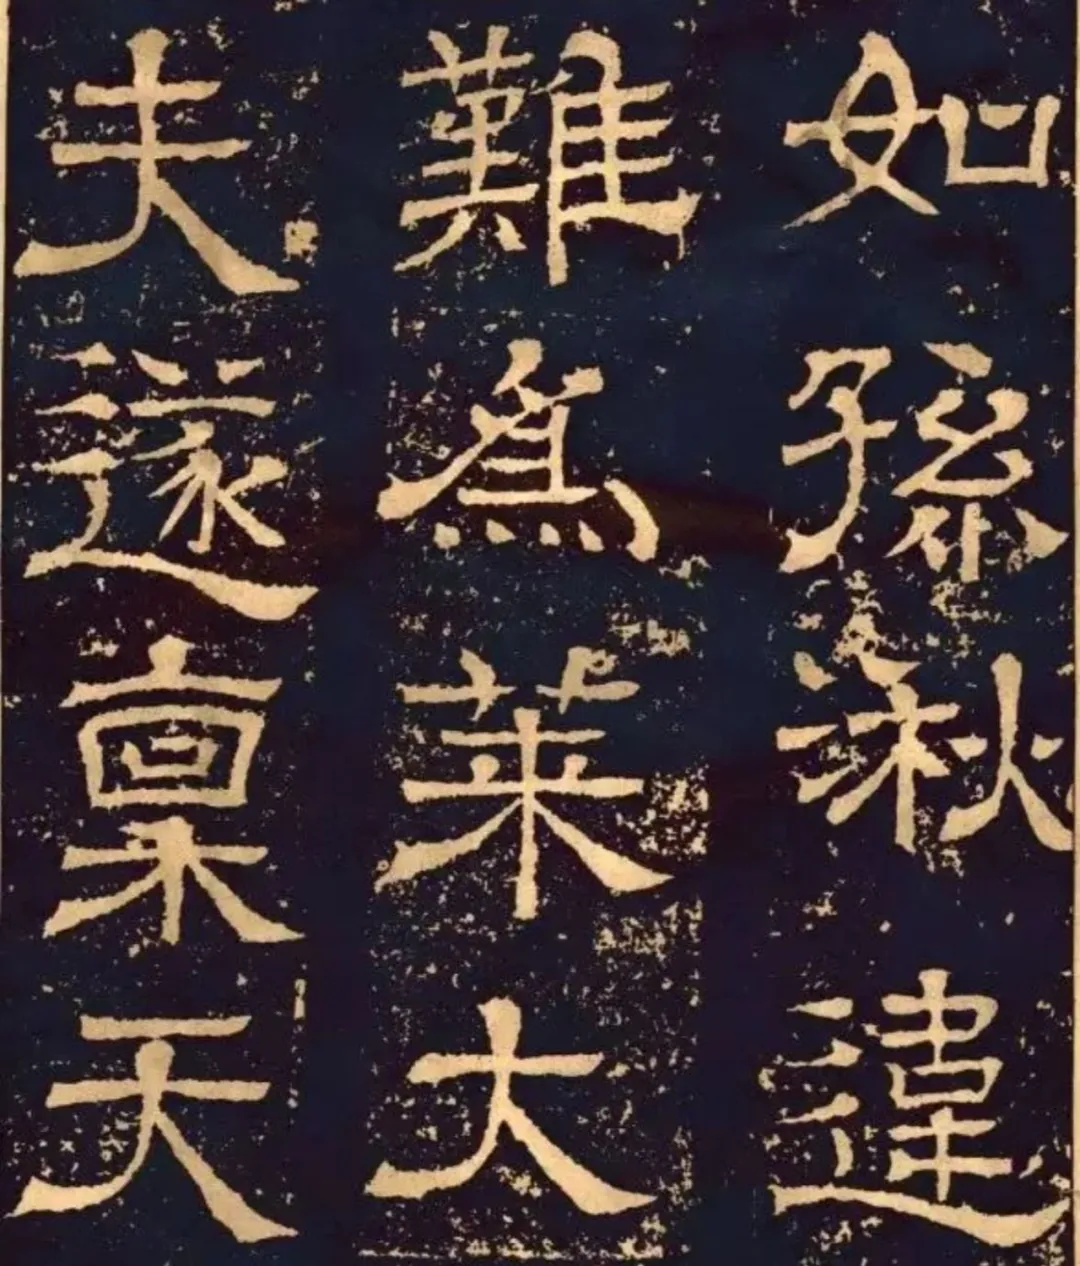 如孫湫違
難為莱大
夫遂稟天